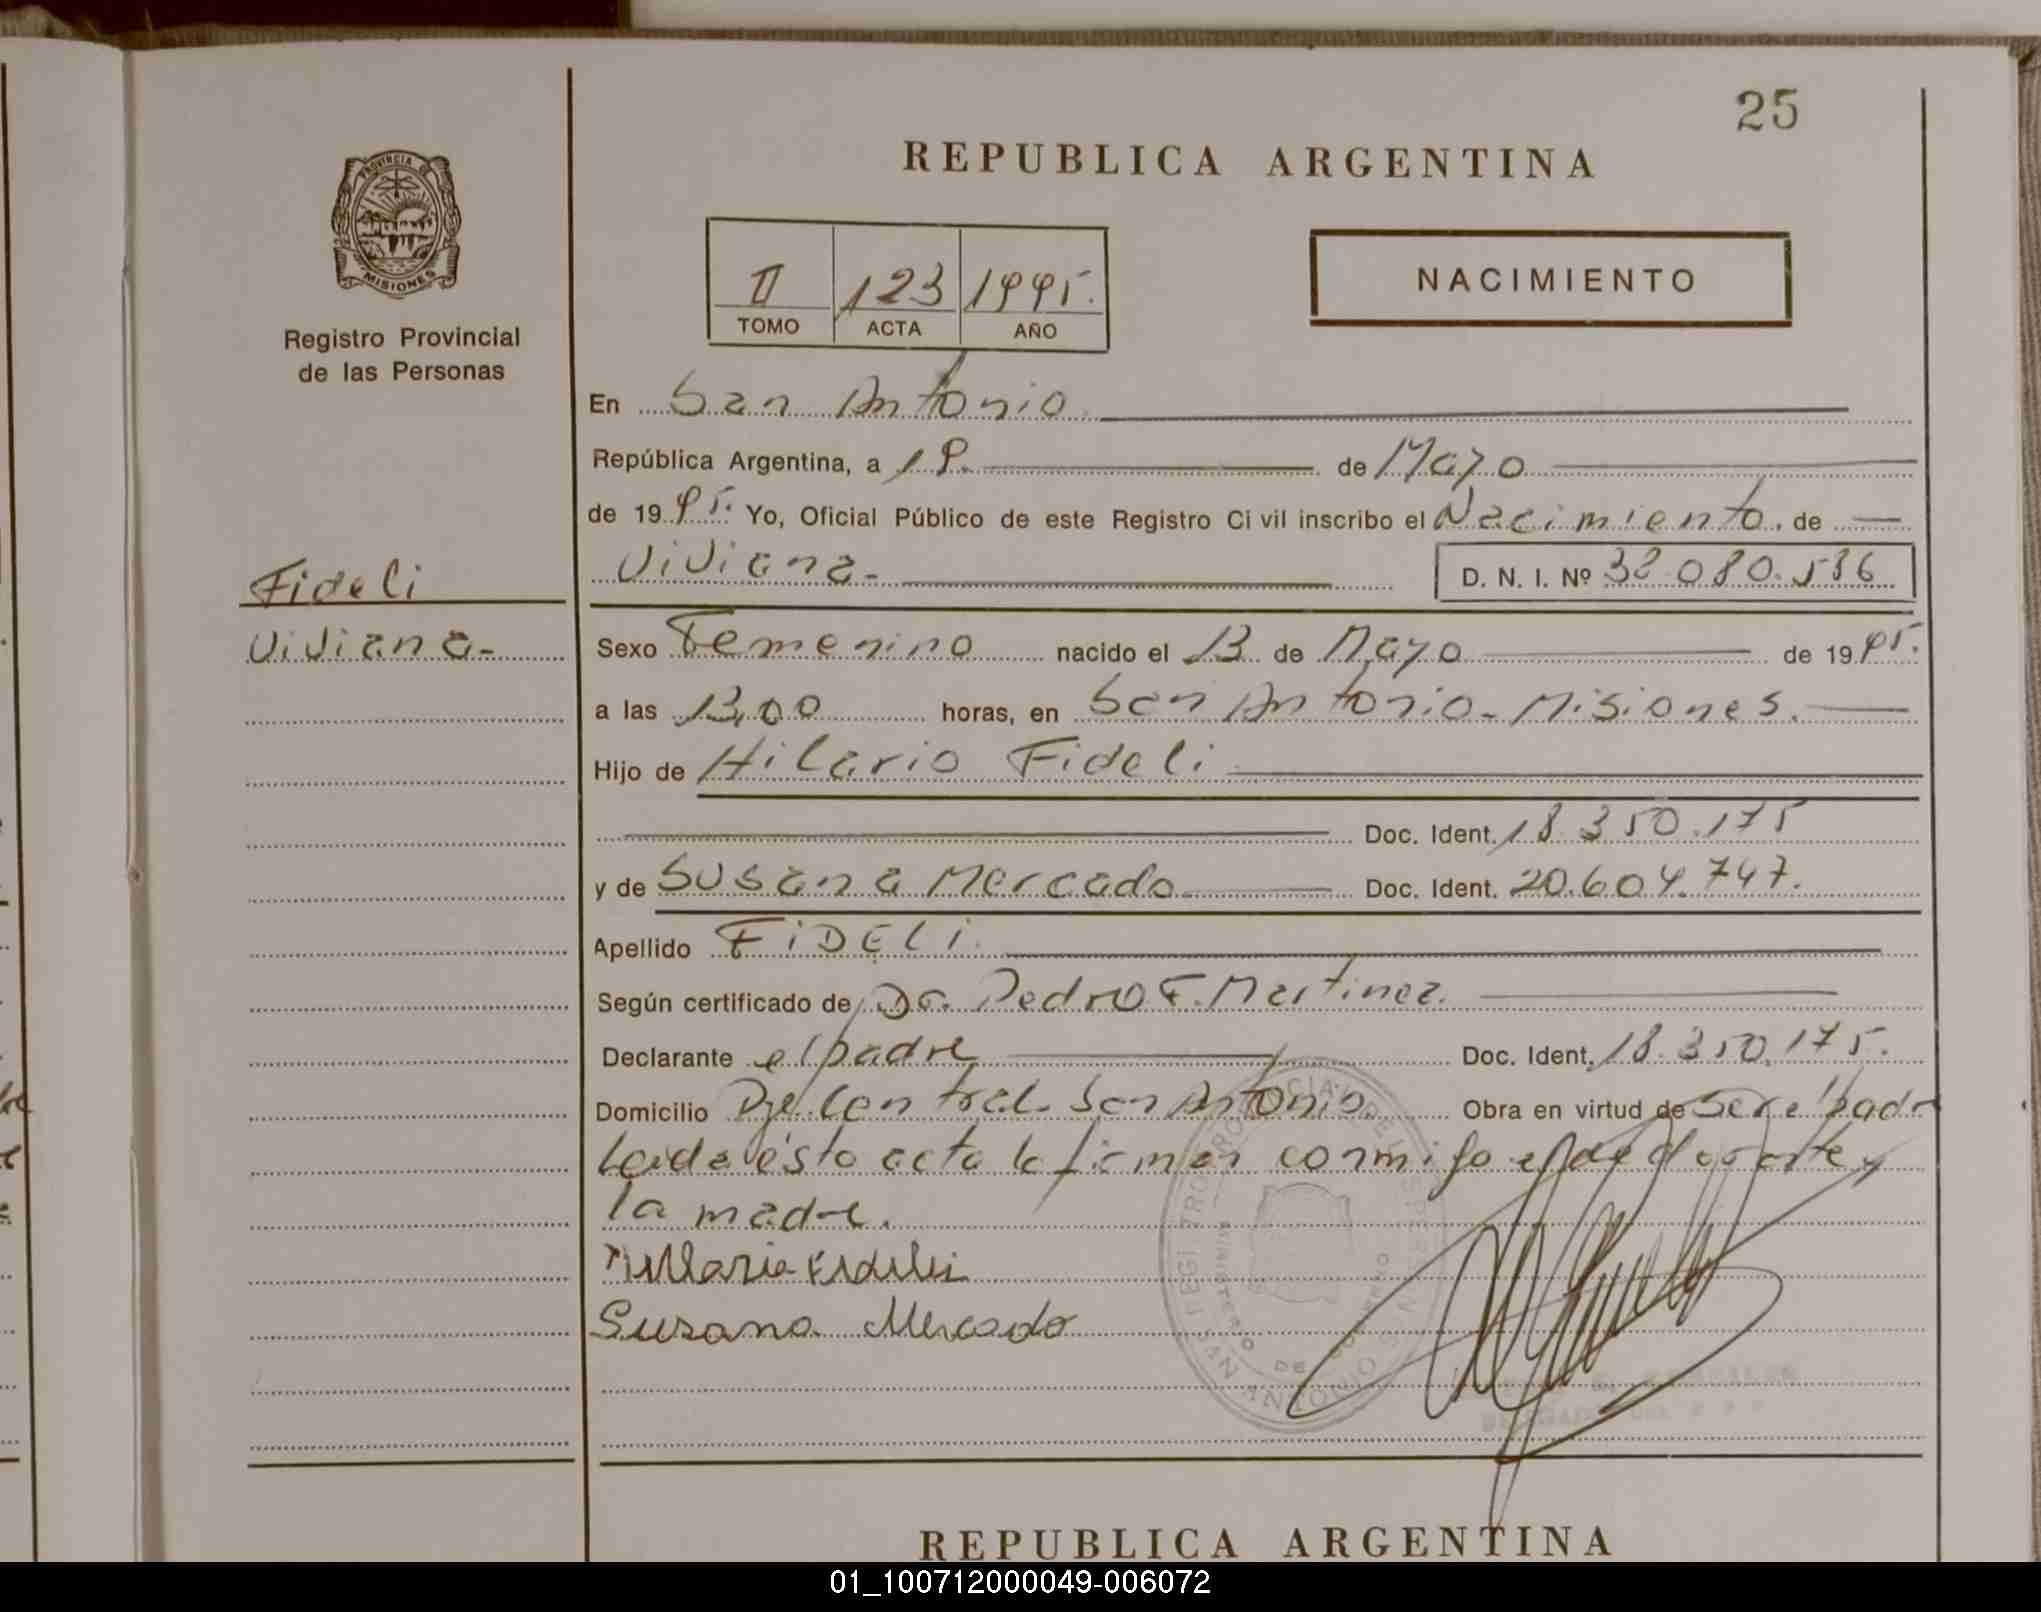 25
REPUBLICA ARGENTINA
PROVINCIA DE
MISIONES
Registro Provincial
de las Personas
II 123 1995.
TOMO ACTA AÑO
NACIMIENTO
En San Antonio
República Argentina, a 19. de Mayo
de 1995. Yo, Oficial Público de este Registro Ci vil inscribo el Nacimiento. de
Viviana- D. N. I. Nº 32.080.536
Fideli
Viviana-
Sexo Femenino nacido el 13 de Mayo de 1995.
a las 13,00 horas, en San Antonio-Misiones.
Hijo de Hilario Fideli
Doc. Ident. 18.350.175
y de Susana Mercado Doc. Ident. 20.604.747.
Apellido FiDELi.
Según certificado de Dr. Pedro F. Martinez.
Declarante el padre Doc. Ident. 18.350.175.
Domicilio Central San Antonio. Obra en virtud de Ser el padre
Leida ésta acta la firman conmigo el declarante y
la madre.
Fideli
Susana Mercado
SAN ANTONIO
MINISTERIO DE GOBIERNO
REPUBLICA ARGENTINA
01_100712000049-006072